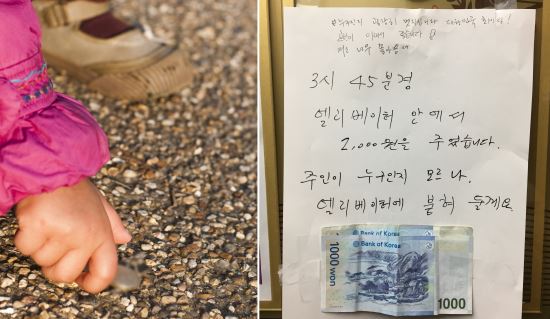 대한민국
3시 45분경
엘리베이터 안에서
2,000원을 주웠습니다.
주인이 누구인지 모르나,
엘리베이터에 붙혀 둘게요.
Bank of Korea
Bank of Korea
1000 won
1000